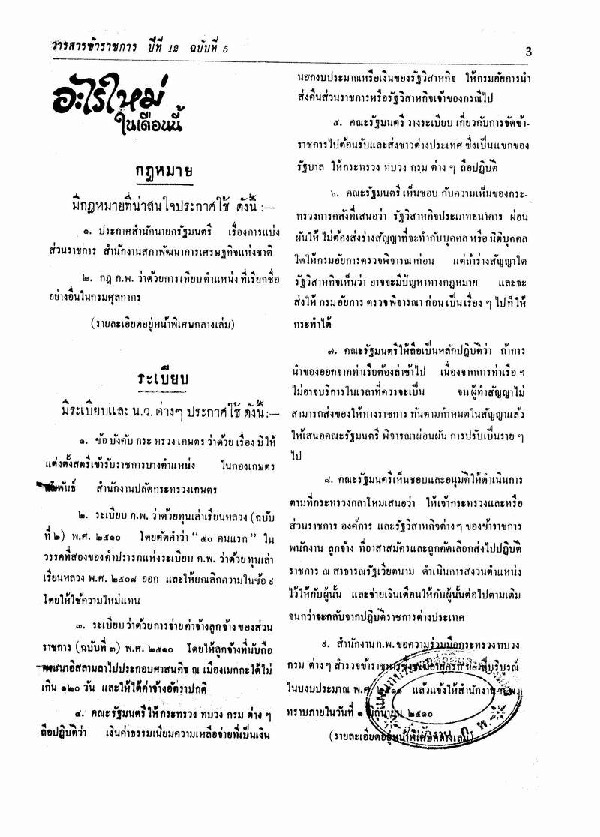 วารสารข้าราชการ ปีที่ 12 ฉบับที่ 5
3
อะไรใหม่
ในเดือนนี้
กฎหมาย
มีกฎหมายที่น่าสนใจประกาศใช้ ดังนี้ :—
๑. ประกาศสำนักนายกรัฐมนตรี เรื่องการแบ่ง
ส่วนราชการ สำนักงานสภาพัฒนาการเศรษฐกิจแห่งชาติ
๒. กฎ ก.พ. ว่าด้วยการเทียบตำแหน่ง ที่เรียกชื่อ
อย่างอื่นในกรมศุลกากร
(รายละเอียดอยู่หน้าพิเศษกลางเล่ม)
ระเบียบ
มีระเบียบและ น.ว. ต่างๆ ประกาศใช้ ดังนี้:—
๑. ข้อบังคับ กระทรวงเกษตร ว่าด้วยเรื่อง มิให้
แต่งตั้งสตรีเข้ารับราชการบางตำแหน่ง ในกองเกษตร
สัมพันธ์ สำนักงานปลัดกระทรวงเกษตร
๒. ระเบียบ ก.พ. ว่าด้วยทุนเล่าเรียนหลวง (ฉบับ
ที่ ๒) พ.ศ. ๒๕๑๐ โดยตัดคำว่า "๕๐ คนแรก" ใน
วรรคที่สองของคำปรารภแห่งระเบียบ ก.พ. ว่าด้วยทุนเล่า
เรียนหลวง พ.ศ. ๒๕๐๘ ออก และให้ยกเลิกความในข้อ ๔
โดยให้ใช้ความใหม่แทน
๓. ระเบียบว่าด้วยการจ่ายค่าจ้างลูกจ้างของส่วน
ราชการ (ฉบับที่ ๓) พ.ศ. ๒๕๑๐ โดยให้ลูกจ้างที่นับถือ
ศาสนาอิสลามลาไปประกอบศาสนกิจ ณ เมืองเมกกะได้ไม่
เกิน ๑๒๐ วัน และให้ได้ค่าจ้างอัตราปกติ
๔. คณะรัฐมนตรีให้ กระทรวง ทบวง กรม ต่าง ๆ
ถือปฏิบัติว่า เงินค่าธรรมเนียมความเหลือจ่ายที่เป็นเงิน
นอกงบประมาณหรือเงินของรัฐวิสาหกิจ ให้กรมอัยการนำ
ส่งคืนส่วนราชการหรือรัฐวิสาหกิจเจ้าของกรณีไป
๕. คณะรัฐมนตรี วางระเบียบ เกี่ยวกับการจัดข้า-
ราชการไปต้อนรับและส่งชาวต่างประเทศ ซึ่งเป็นแขกของ
รัฐบาล ให้กระทรวง ทบวง กรม ต่าง ๆ ถือปฏิบัติ
๖. คณะรัฐมนตรี เห็นชอบ กับความเห็นของกระ-
ทรวงการคลังที่เสนอว่า รัฐวิสาหกิจประเภทธนาคาร ผ่อน
ผันให้ ไม่ต้องส่งร่างสัญญาที่จะทำกับบุคคล หรือ นิติบุคคล
ใดให้กรมอัยการตรวจพิจารณาก่อน แต่ถ้าร่างสัญญาใด
รัฐวิสาหกิจเห็นว่า อาจจะมีปัญหาทางกฎหมาย และจะ
ส่งให้ กรมอัยการ ตรวจพิจารณา ก่อน เป็นเรื่อง ๆ ไปก็ให้
กระทำได้
๗. คณะรัฐมนตรีให้ถือเป็นหลักปฏิบัติว่า ถ้าการ
นำของออกจากท่าเรือต้องล่าช้าไป เนื่องจากการท่าเรือ ฯ
ไม่อาจบริการในเวลาที่ควรจะเป็น จนผู้ทำสัญญาไม่
สามารถส่งของให้ทางราชการ ทันตามกำหนดในสัญญาแล้ว
ให้เสนอคณะรัฐมนตรี พิจารณาผ่อนผัน การปรับเป็นราย ๆ
ไป
๘. คณะรัฐมนตรีเห็นชอบและอนุมัติให้ดำเนินการ
ตามที่กระทรวงกลาโหมเสนอว่า ให้เจ้ากระทรวงและหรือ
ส่วนราชการ องค์การ และรัฐวิสาหกิจต่าง ๆ ของข้าราชการ
พนักงาน ลูกจ้าง ที่อาสาสมัครและถูกคัดเลือกส่งไปปฏิบัติ
ราชการ ณ สาธารณรัฐเวียดนาม ดำเนินการสงวนตำแหน่ง
ไว้ให้กับผู้นั้น และจ่ายเงินเดือนให้กับผู้นั้นต่อไปตามเดิม
จนกว่าจะกลับจากปฏิบัติราชการต่างประเทศ
๙. สำนักงาน ก.พ. ขอความร่วมมือกระทรวง ทบวง
กรม ต่าง ๆ สำรวจข้าราชการ
ในงบประมาณ พ.ศ. แล้วแจ้งให้สำนักงาน ก.พ.
ทราบภายในวันที่ ๑ ๒๕๑๐
(รายละเอียดอยู่หน้าพิเศษกลางเล่ม)